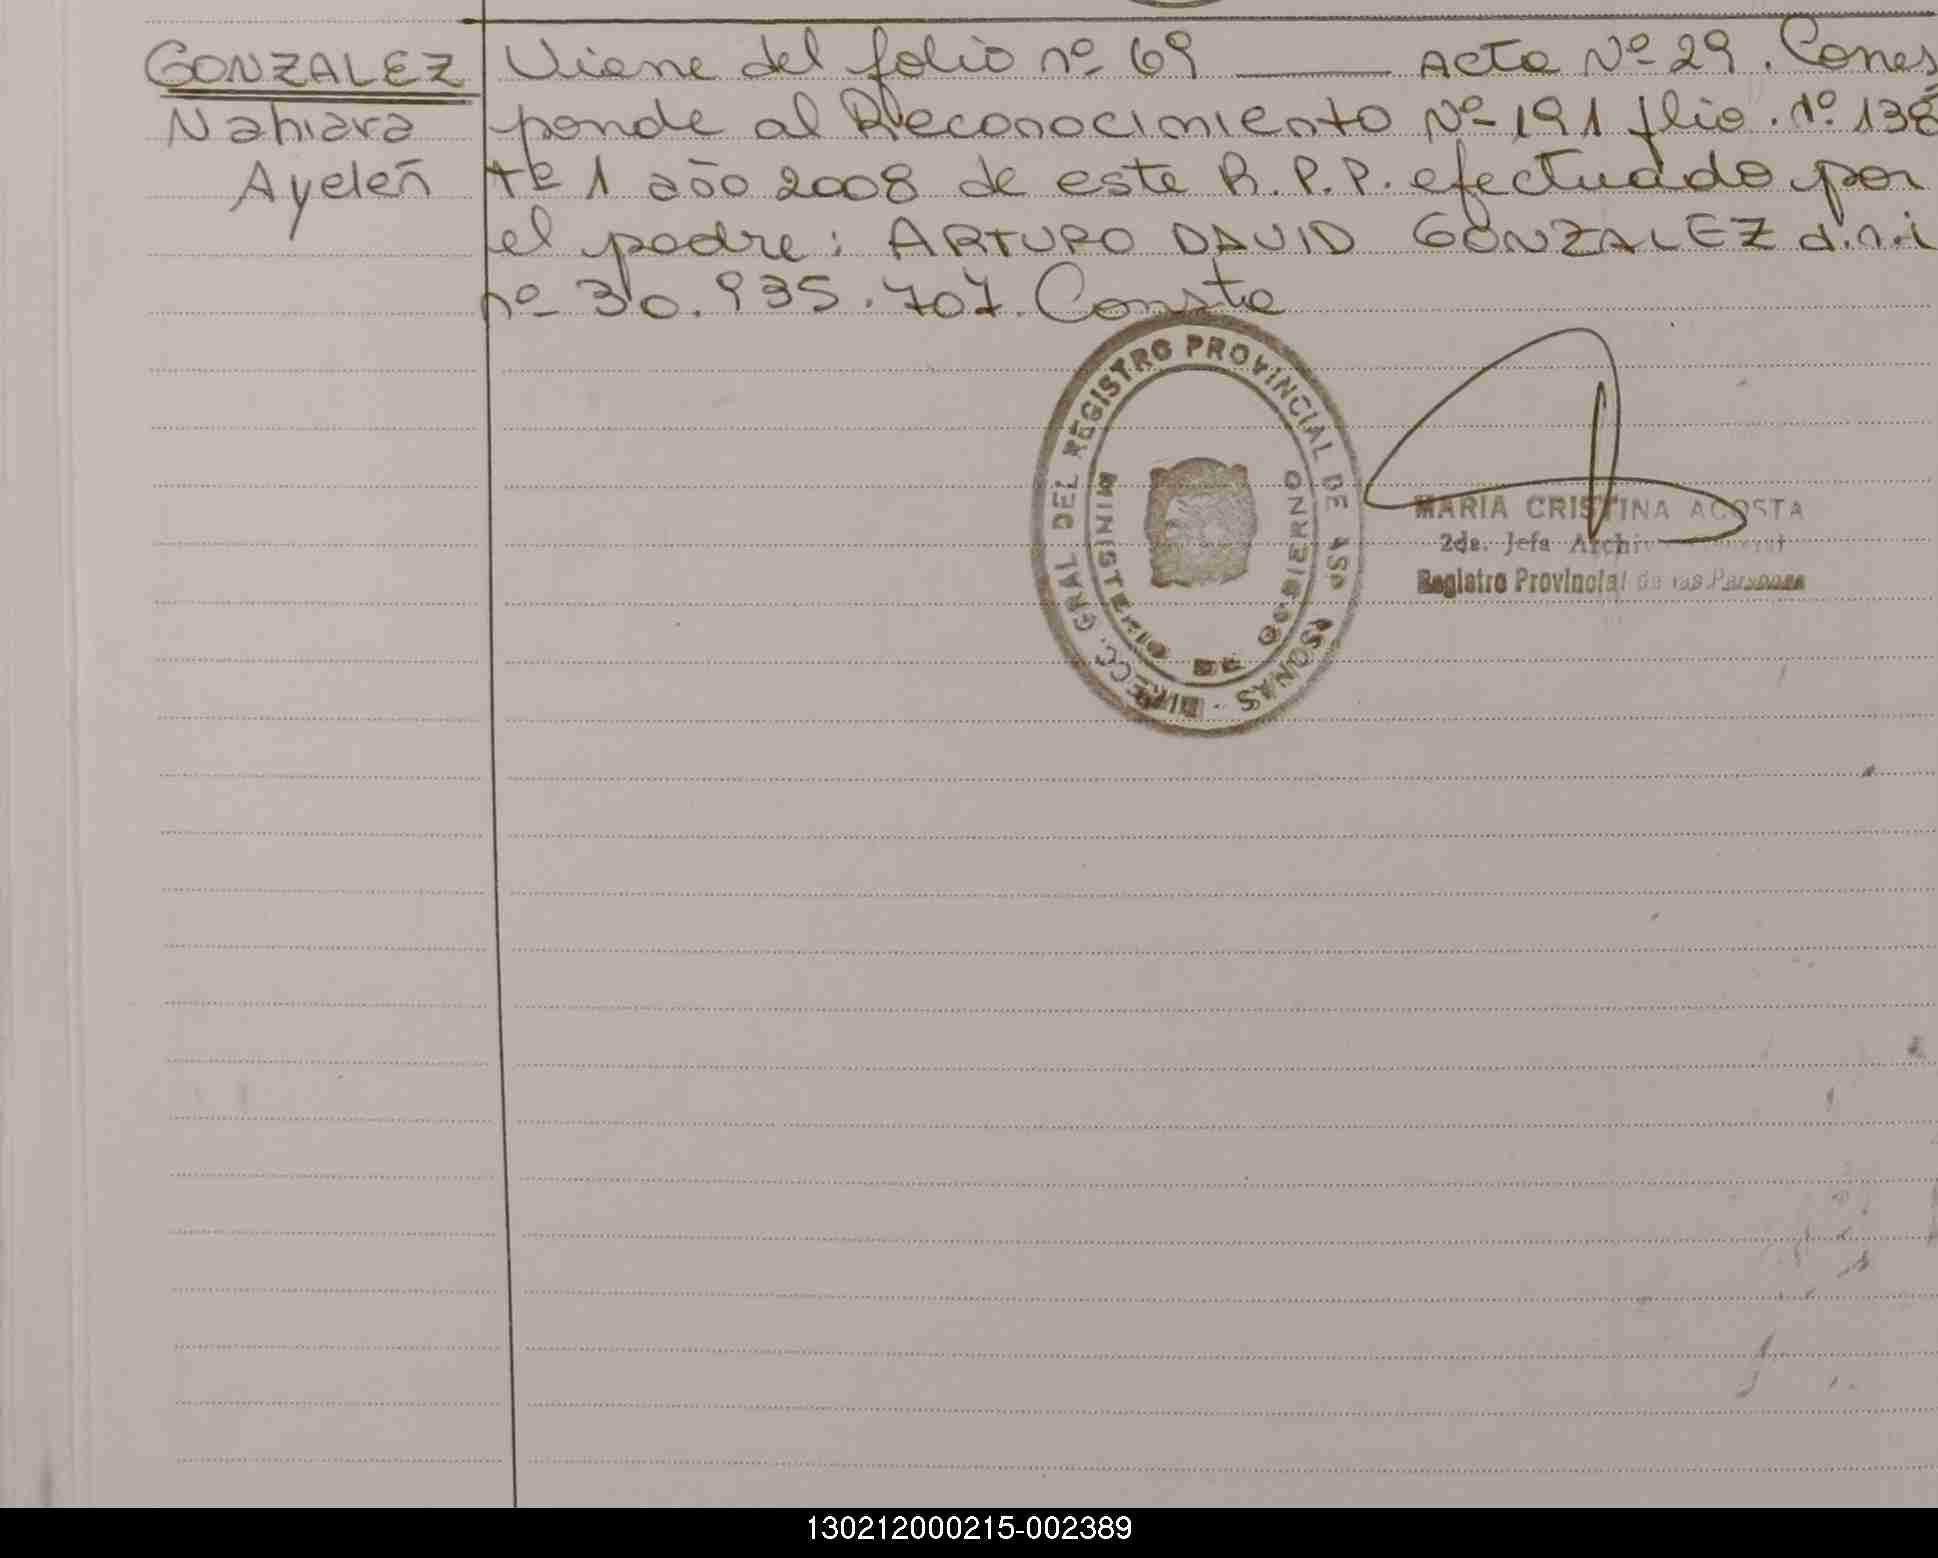 GONZALEZ
Nahiara
Ayelén
Viene del folio nº 69 ——— Acta Nº 29. Corres
ponde al Reconocimiento Nº 191 flio. nº 138
tº 1 año 2008 de este R.P.P. efectuado por
el padre: ARTURO DAVID GONZALEZ d.n.i
nº 30.935.707. Conste
DIRECC. GRAL DEL REGISTRO PROVINCIAL DE
MINISTERIO DE GOBIERNO
MARIA CRISTINA ACOSTA
2da. Jefa
Registro Provincial de las Personas
130212000215-002389